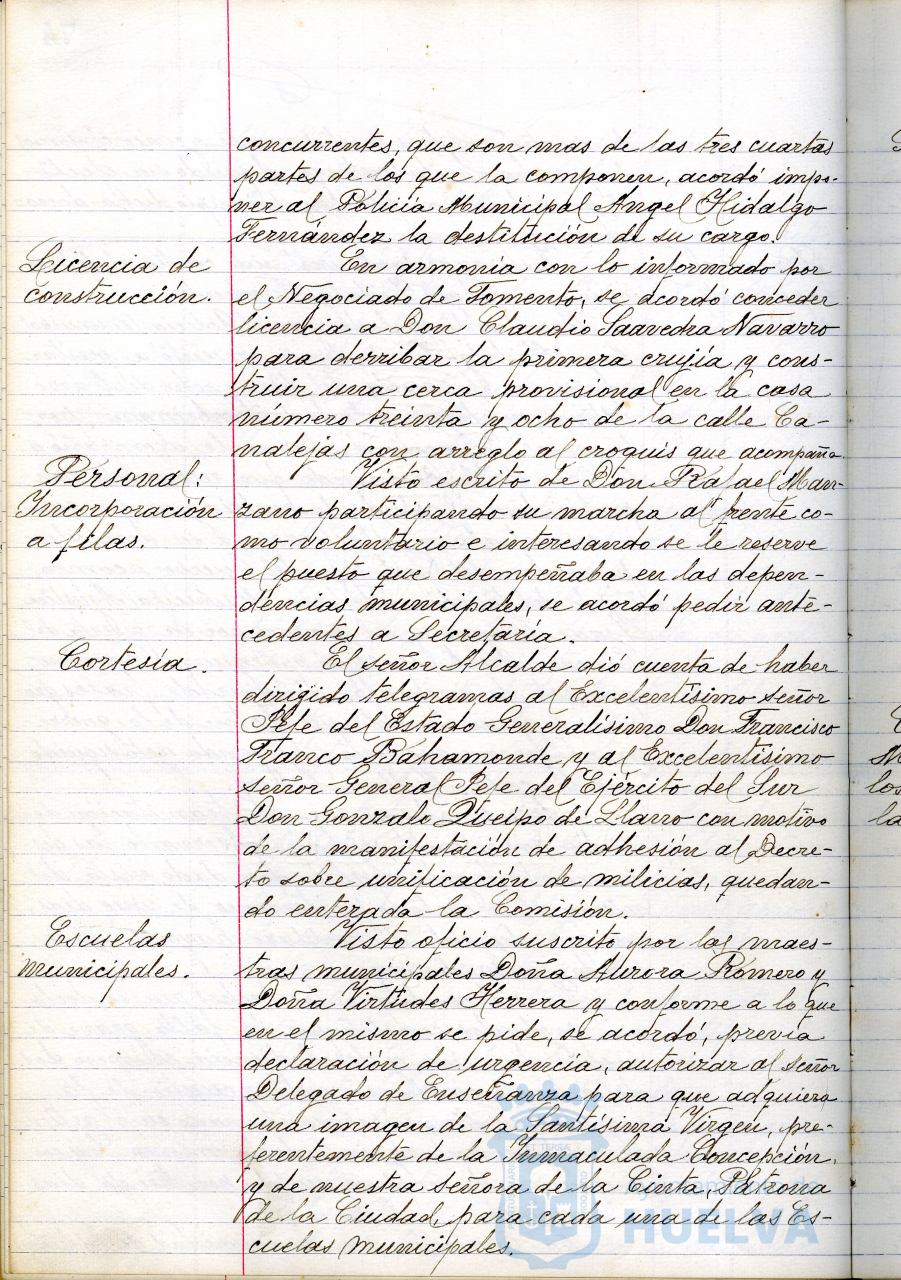 concurrentes, que son mas de las tres cuartas
partes de los que la componen, acordó impo-
ner al Policía Municipal Angel Hidalgo
Fernández la destitución de su cargo.
Licencia de
construcción.
En armonía con lo informado por
el Negociado de Fomento, se acordó conceder
licencia a Don Claudio Saavedra Navarro
para derribar la primera crujía y cons-
truir una cerca provisional en la casa
número treinta y ocho de la calle Ca-
nalejas con arreglo al croquis que acompaña.
Personal:
Incorporación
a filas.
Visto escrito de Don Rafael Man-
zano participando su marcha al frente co-
mo voluntario e interesando se le reserve
el puesto que desempeñaba en las depen-
dencias municipales, se acordó pedir ante-
cedentes a Secretaría.
Cortesía.
El señor Alcalde dió cuenta de haber
dirigido telegramas al Excelentísimo señor
Jefe del Estado Generalísimo Don Francisco
Franco Bahamonde y al Excelentísimo
señor General Jefe del Ejército del Sur
Don Gonzalo Queipo de Llano con motivo
de la manifestación de adhesión al Decre-
to sobre unificación de milicias, quedan-
do enterada la Comisión.
Escuelas
municipales.
Visto oficio suscrito por las maes-
tras municipales Doña Aurora Romero y
Doña Virtudes Herrera y conforme a lo que
en el mismo se pide, se acordó, previa
declaración de urgencia, autorizar al señor
Delegado de Enseñanza para que adquiera
una imagen de la Santísima Virgen, pre-
ferentemente de la Inmaculada Concepción,
y de nuestra señora de la Cinta, Patrona
de la Ciudad, para cada una de las Es-
cuelas municipales.
HUELVA